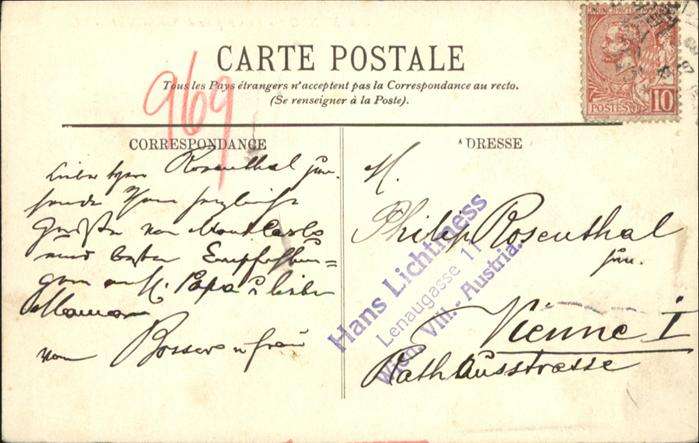 CARTE POSTALE
Tous les Pays étrangers n'acceptent pas la Correspondance au recto.
(Se renseigner à la Poste).
969
POSTES
10
CORRESPONDANCE
ADRESSE
Lieber Rosenthal jun.
sende Ihnen herzliche
Grüße von Monte Carlo
und besten Empfehlun=
gen an H. Papa u lieber
Maman
von Frau
M.
Philip Rosenthal
jun.
Vienne I
Rathausstrasse
Hans Lichtmess
Lenaugasse 11
Wien VIII. - Austria.